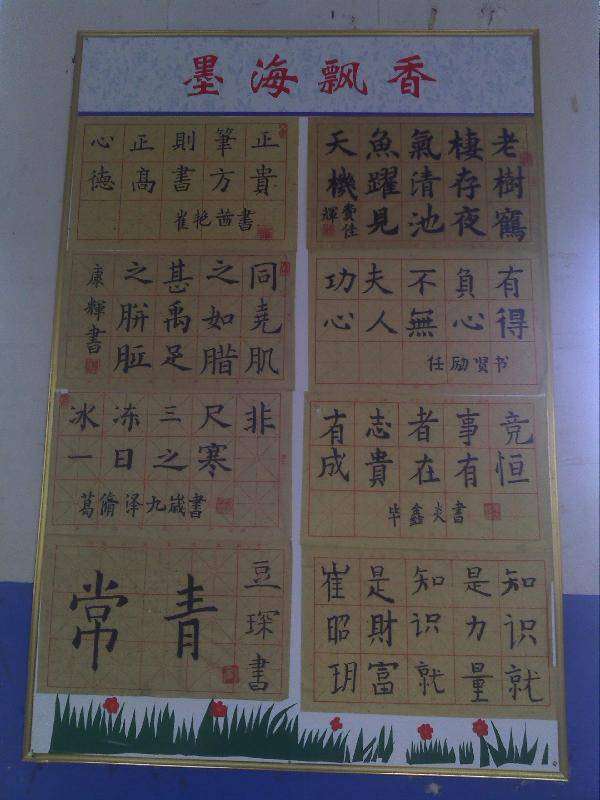 墨海飘香
心正則筆正
德高書方貴
崔艳茜書
同堯肌
之如腊
甚禹足
之胼胝
康輝書
冰冻三尺非
一日之寒
葛脩泽九歳書
常青
豆琛書
老樹鶴
棲存夜
氣清池
魚躍見
天機
費佳輝
功夫不負有
心人無心得
任励贤书
有志者事竞
成貴在有恒
毕鑫炎書
知识就
是力量
知识就
是財富
崔昭玥